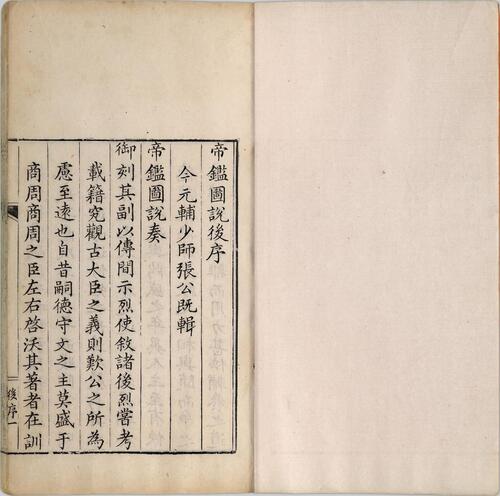 帝鑑圖說後序
今元輔少師張公既輯
帝鑑圖說奏
御刻其副以傳間示烈使敘諸後烈嘗考
載籍究觀古大臣之義則歎公之所為
慮至遠也自昔嗣德守文之主莫盛于
商周商周之臣左右啓沃其著者在訓
後序一